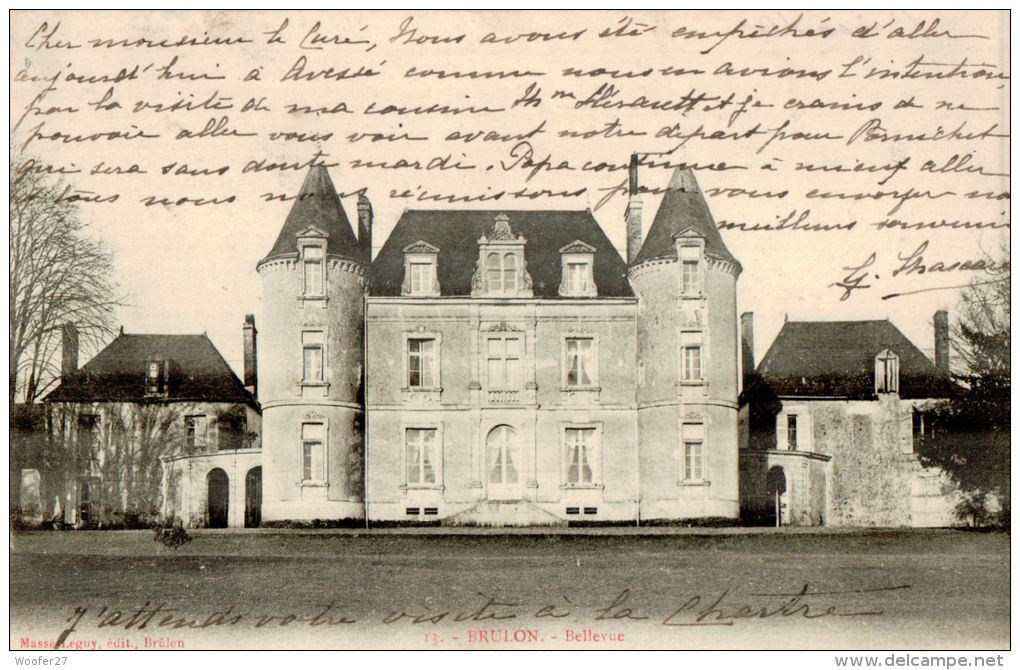 Cher monsieur le Curé, Nous avons été empêchés d'aller
aujourd'hui à Avessé comme nous en avions l'intention,
par la visite de ma cousine Mme Hérault et je crains de ne
pouvoir aller vous voir avant notre départ pour Pornichet
qui sera sans doute mardi. Papa continue à mieux aller
tous nous nous réunissons pour vous envoyer nos
meilleurs souvenirs
J'attends votre visite à la Chartre
Massé-Leguy, édit., Brûlon
13. - BRULON. - Bellevue
Woofer27
www.delcampe.net